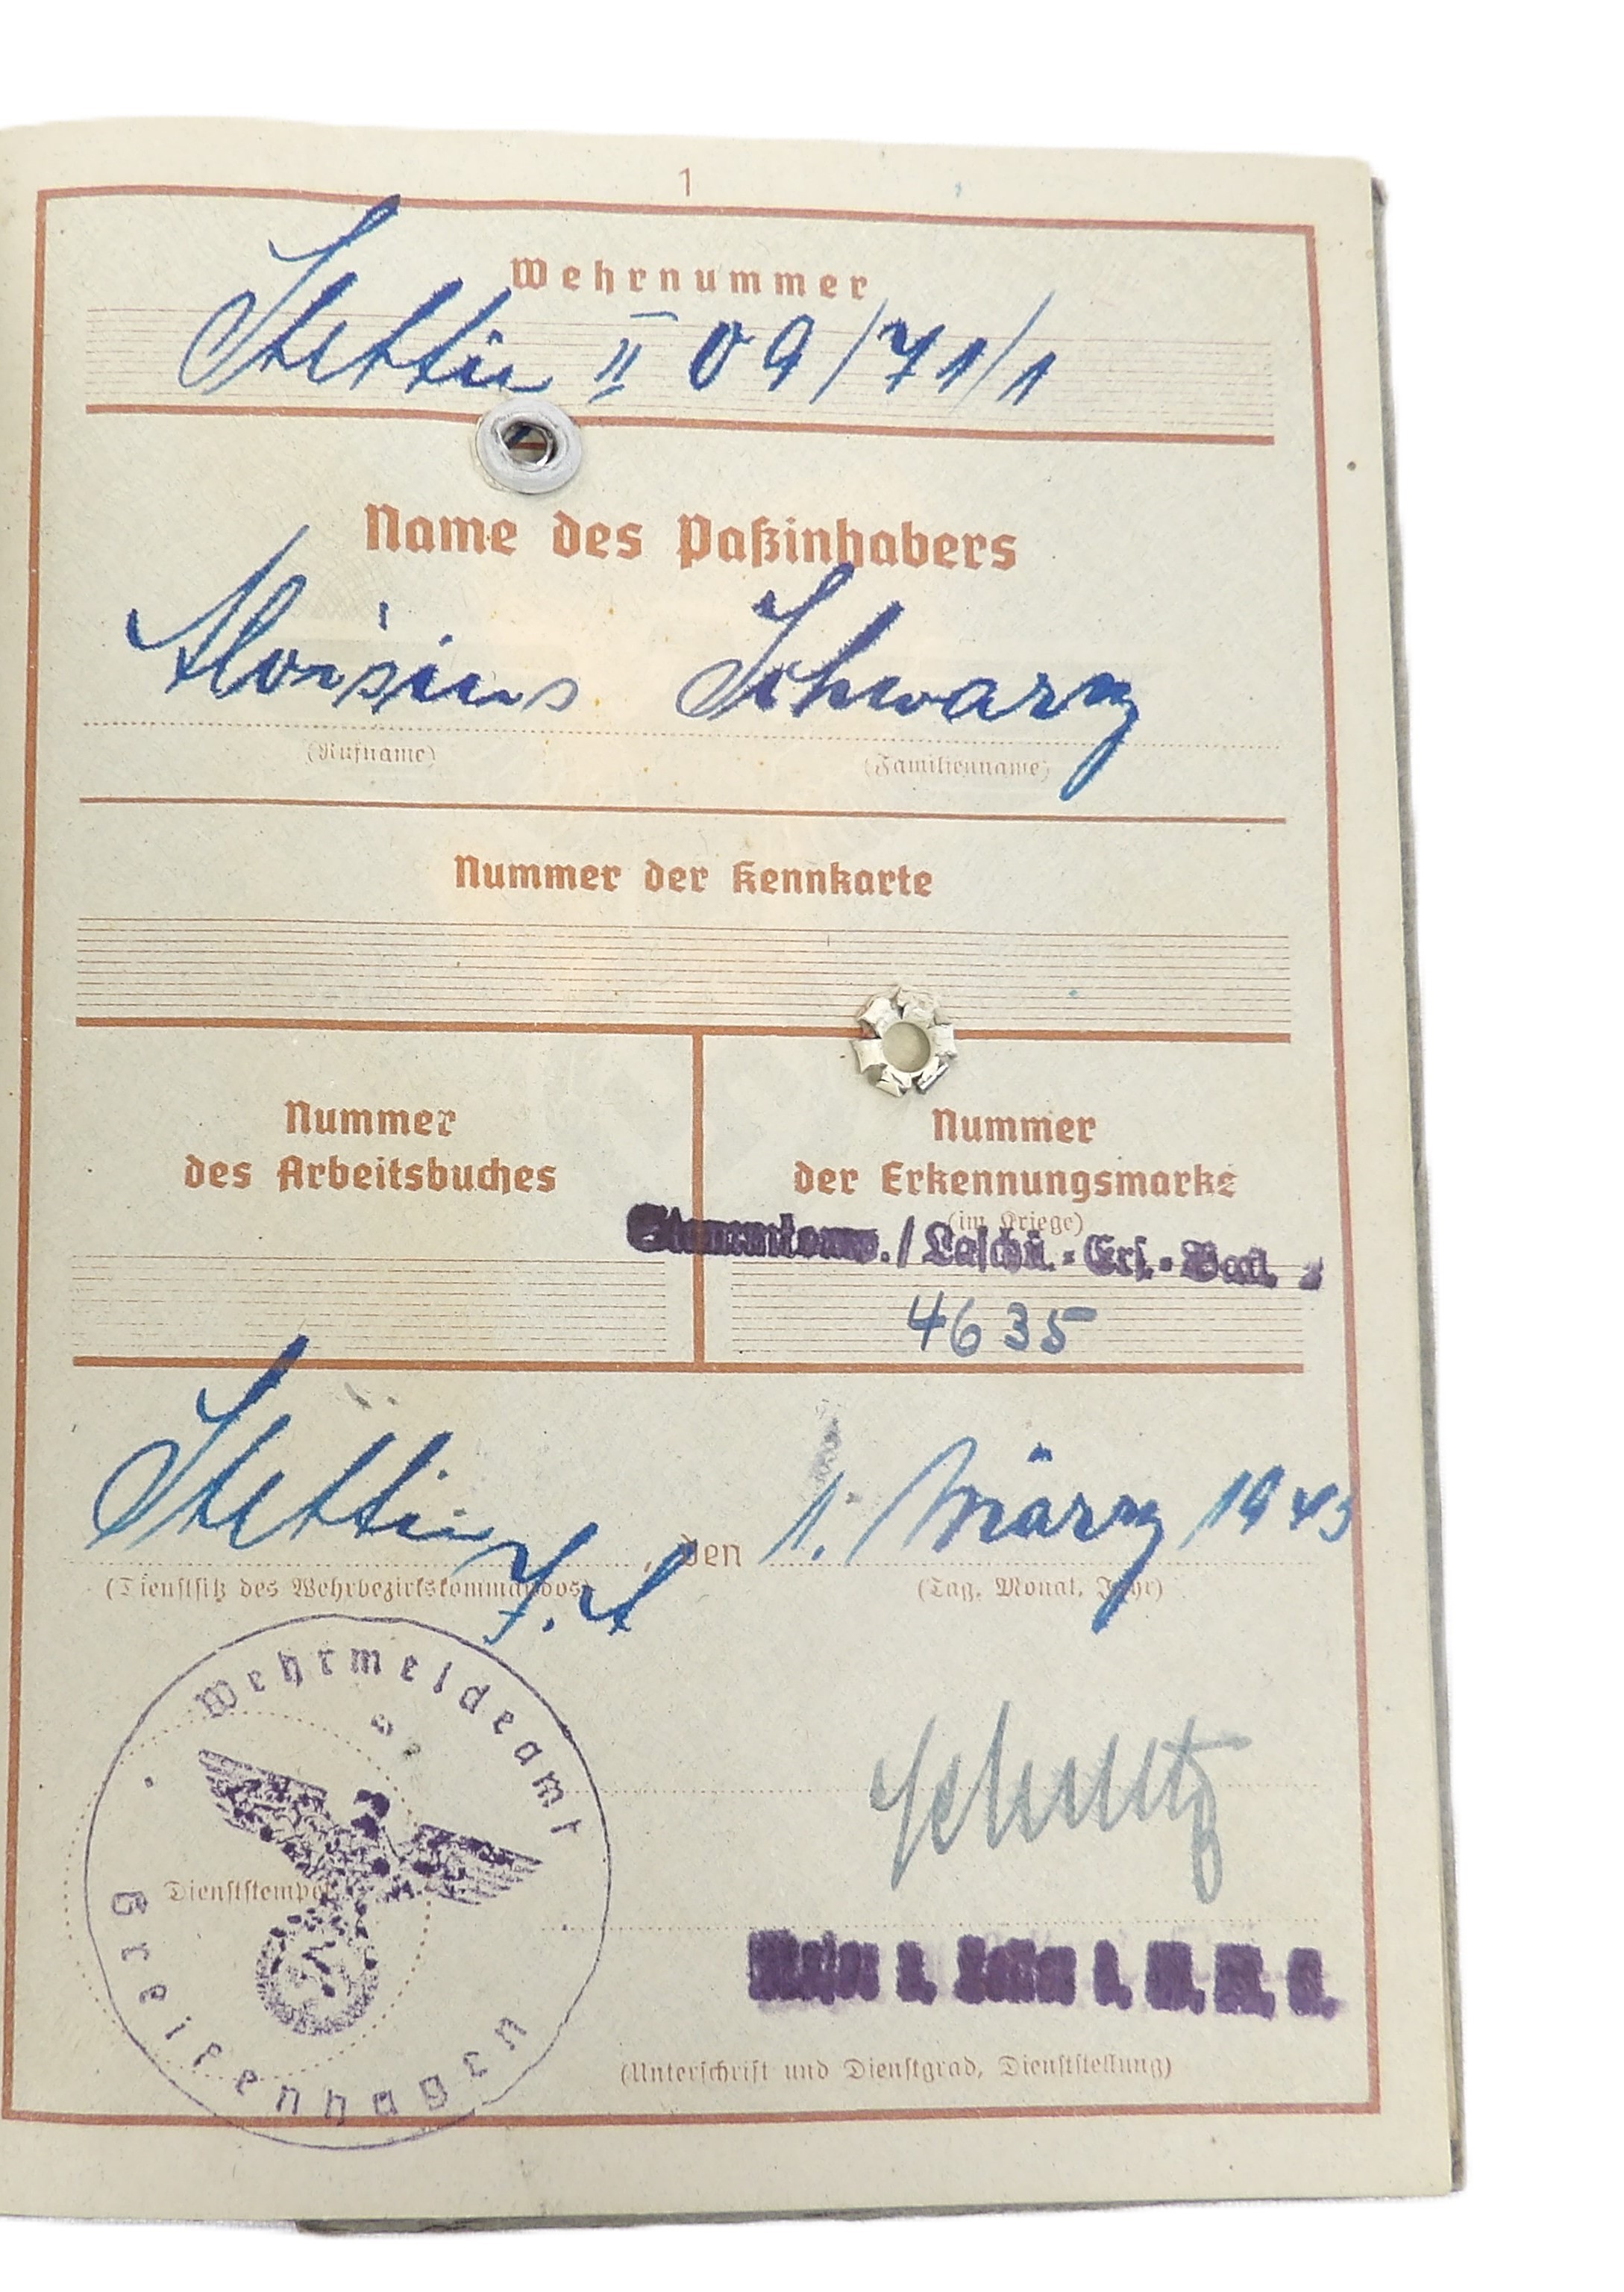 1
Wehrnummer
Stettin II 09/71/1
Name des Paßinhabers
Aloisius Schwarz
(Rufname) (Familienname)
Nummer der Kennkarte
Nummer
des Arbeitsbuches
Nummer
der Erkennungsmarke
(im Kriege)
Stammkomp. / Ldsschü.-Ers.-Batl.
4635
Stettin, den 1. März 1943
(Dienstsitz des Wehrbezirkskommandos) (Tag, Monat, Jahr)
J. A
Wehrmeldeamt
Greifenhagen
Dienststempel
(Unterschrift und Dienstgrad, Dienststellung)